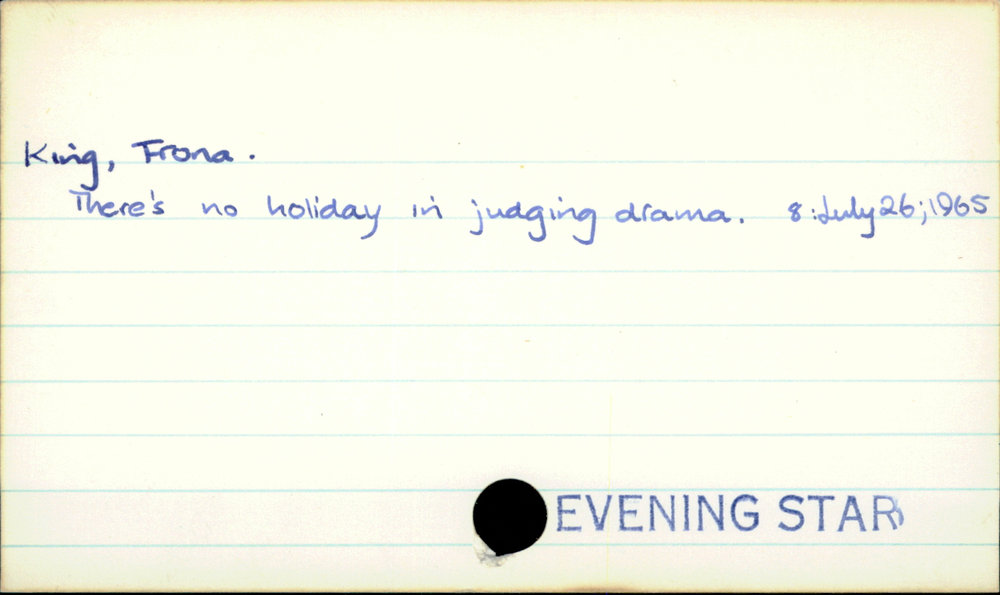 King, Frona.
There's no holiday in judging drama. 8:July 26;1965
EVENING STAR